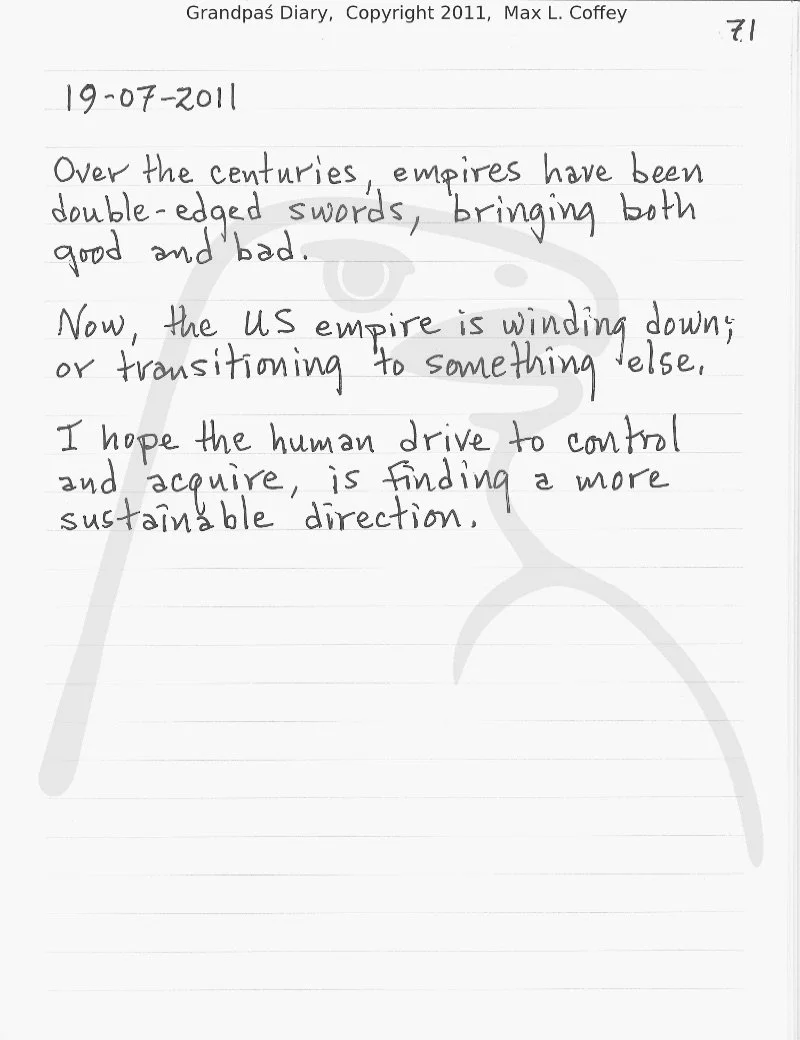 Grandpaś Diary,  Copyright 2011,  Max L. Coffey
71
19-07-2011
Over the centuries, empires have been
double-edged swords, bringing both
good and bad.
Now, the US empire is winding down;
or transitioning to something else.
I hope the human drive to control
and acquire, is finding a more
sustainable direction.